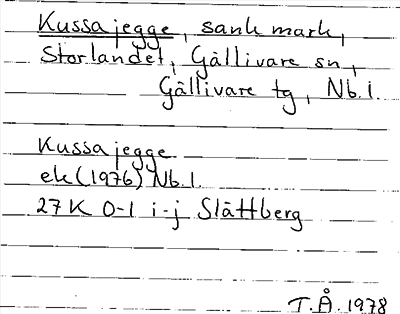 Kussajegge, sank mark,
Storlandet, Gällivare sn,
Gällivare tg, Nb.l.
Kussajegge
ek (1976) Nb.l.
27K 0-1 i-j Slättberg
T.Å. 1978